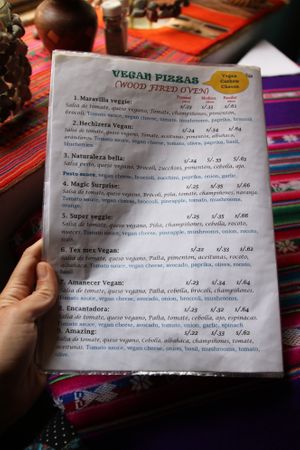 VEGAN PIZZAS
(WOOD FIRED OVEN)
Vegan
Cashew
Cheese
Personal Medium Familiar
size size size
1. Maravilla veggie: s/.23 s/.33 s/.61
Salsa de tomate, queso vegano, Tomate, champiñones, pimenton,
brócoli. Tomato sauce, vegan cheese, tomato, mushrooms, paprika, broccoli
2. Hechizera Vegan: s/.24 s/.34 s/.64
Salsa de tomate, queso vegano, Tomate, aceitunas, pimenton, albahaca,
Tomato sauce, vegan cheese, tomato, olives, paprika, basil,
blueberries
3. Naturaleza bella: s/.24 S/.33 s/.63
Salsa pesto, queso vegano, Brócoli, zucchini, pimenton, cebolla, ajo.
Pesto sauce, vegan cheese, broccoli, zucchini, paprika, onion, garlic.
4. Magic Surprise: s/.25 s/.35 s/.66
Salsa de tomate, queso vegano, Brócoli, piña, tomate, champiñones, naranja.
Tomato sauce, vegan cheese, broccoli, pineapple, tomato, mushrooms, orange.
5. Super veggie: s/.25 s/.35 s/.66
Salsa de tomate, queso vegano, Piña, champiñones, cebolla, rocoto,
nueces. Tomato sauce, vegan cheese, pineapple, mushrooms, onion, rocoto,
6. Tex mex Vegan: s/.22 s/.33 s/.62
Salsa de tomate, queso vegano, Palta, pimenton, aceitunas, rocoto,
basil Tomato sauce, vegan cheese, avocado, paprika, olives, rocoto,
basil.
7. Amanecer Vegan: s/.23 s/.34 s/.64
Salsa de tomate, queso vegano, Palta, cebolla, brócoli, champiñones.
Tomato sauce, vegan cheese, avocado, onion, broccoli, mushrooms.
8. Encantadora: s/.23 s/.32 s/.64
Salsa de tomate, queso vegano, Palta, tomate, cebolla, ajo, espinacas.
Tomato sauce, vegan cheese, avocado, tomato, onion, garlic, spinach
9. Amazing: s/.22 s/.33 s/.62
Salsa de tomate, queso vegano, Cebolla, albahaca, champiñones, tomate,
aceitunas. Tomato sauce, vegan cheese, onion, basil, mushrooms, tomato,
olive.